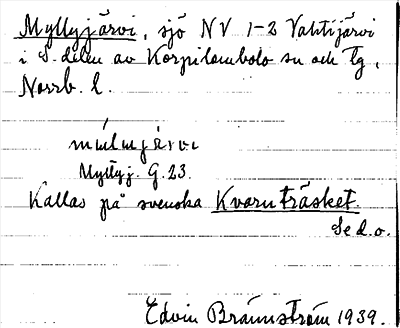 Myllyjärvi, sjö NV 1-2 Vahtijärvi
i S. delen av Korpilombolo sn och tg,
Norrb. l.
Myllyj. G. 23.
Kallas på svenska Kvarnträsket.
Se d. o.
Edvin Brännström 1939.